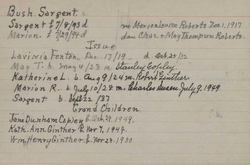 Bush, Sargent.
Sargent b 7/8/93 d m Marion Louise Roberts Jan 1, 1917
Marion b 7/29/94 d dau Chas. + May Thompson Roberts.
Issue
Lavinia Fenton Dec 17/19 d. Oct 27/22
May T. b May 4/23 m Stanley Copley
Katherine L. b Aug 9/24 m. Robert Ginther
Marion R. b July 10/28 m. Charles July 9, 1949
Sargent b 22/37
Grand Children
Jane Dunham Copley b Oct 29, 1949.
Kath. Ann Ginther b Nov 7, 1949.
Wm Henry Ginther b Nov 29, 1950